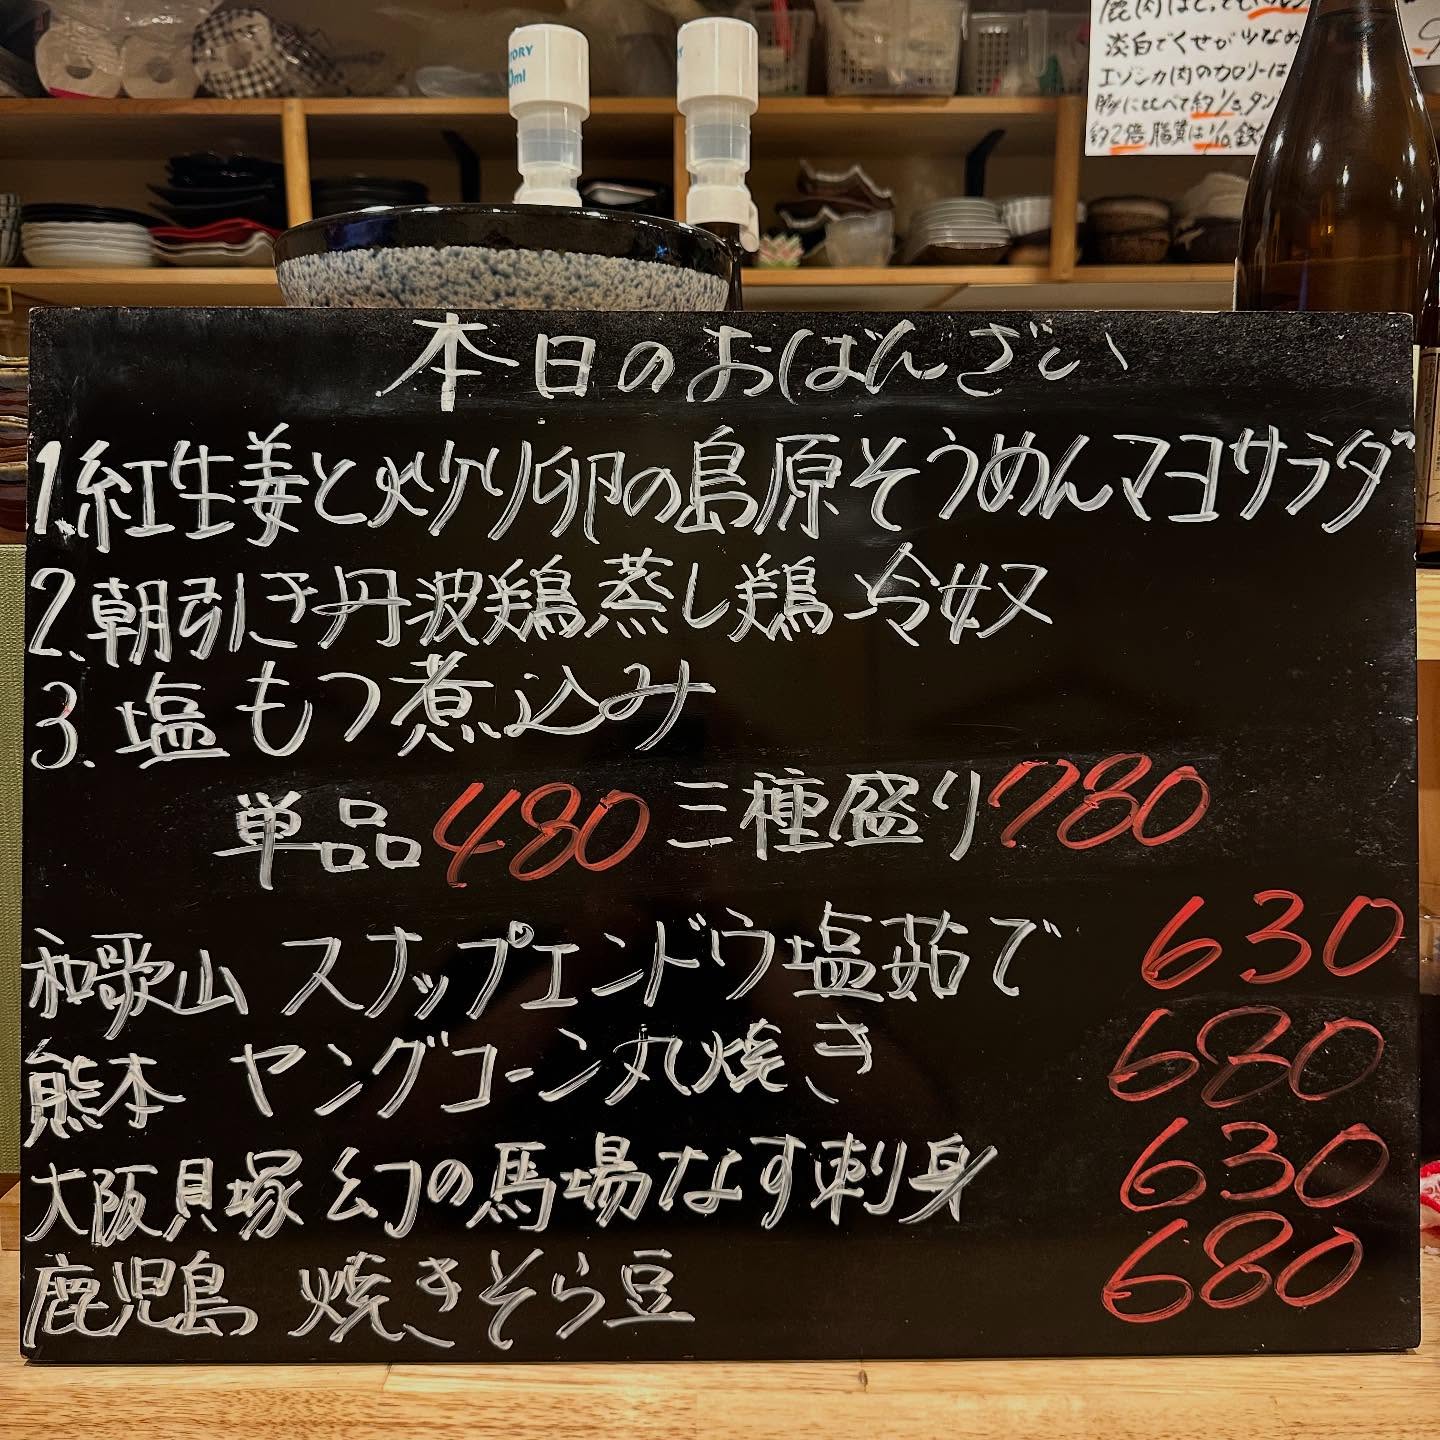 鹿肉はとってもヘルシ
淡白でくせが少なめ
エゾシカ肉のカロリーは
豚に比べて約1/3、タン
約2倍脂質は1/10鉄
本日のおばんざい
1.紅生姜と炒り卵の島原そうめんマヨサラダ
2.朝引き丹波鶏蒸し鶏 冷奴
3.塩もつ煮込み
単品480 三種盛り780
和歌山 スナップエンドウ塩茹で 630
熊本 ヤングコーン丸焼き 680
大阪貝塚 幻の馬場なす刺身 630
鹿児島 焼きそら豆 680